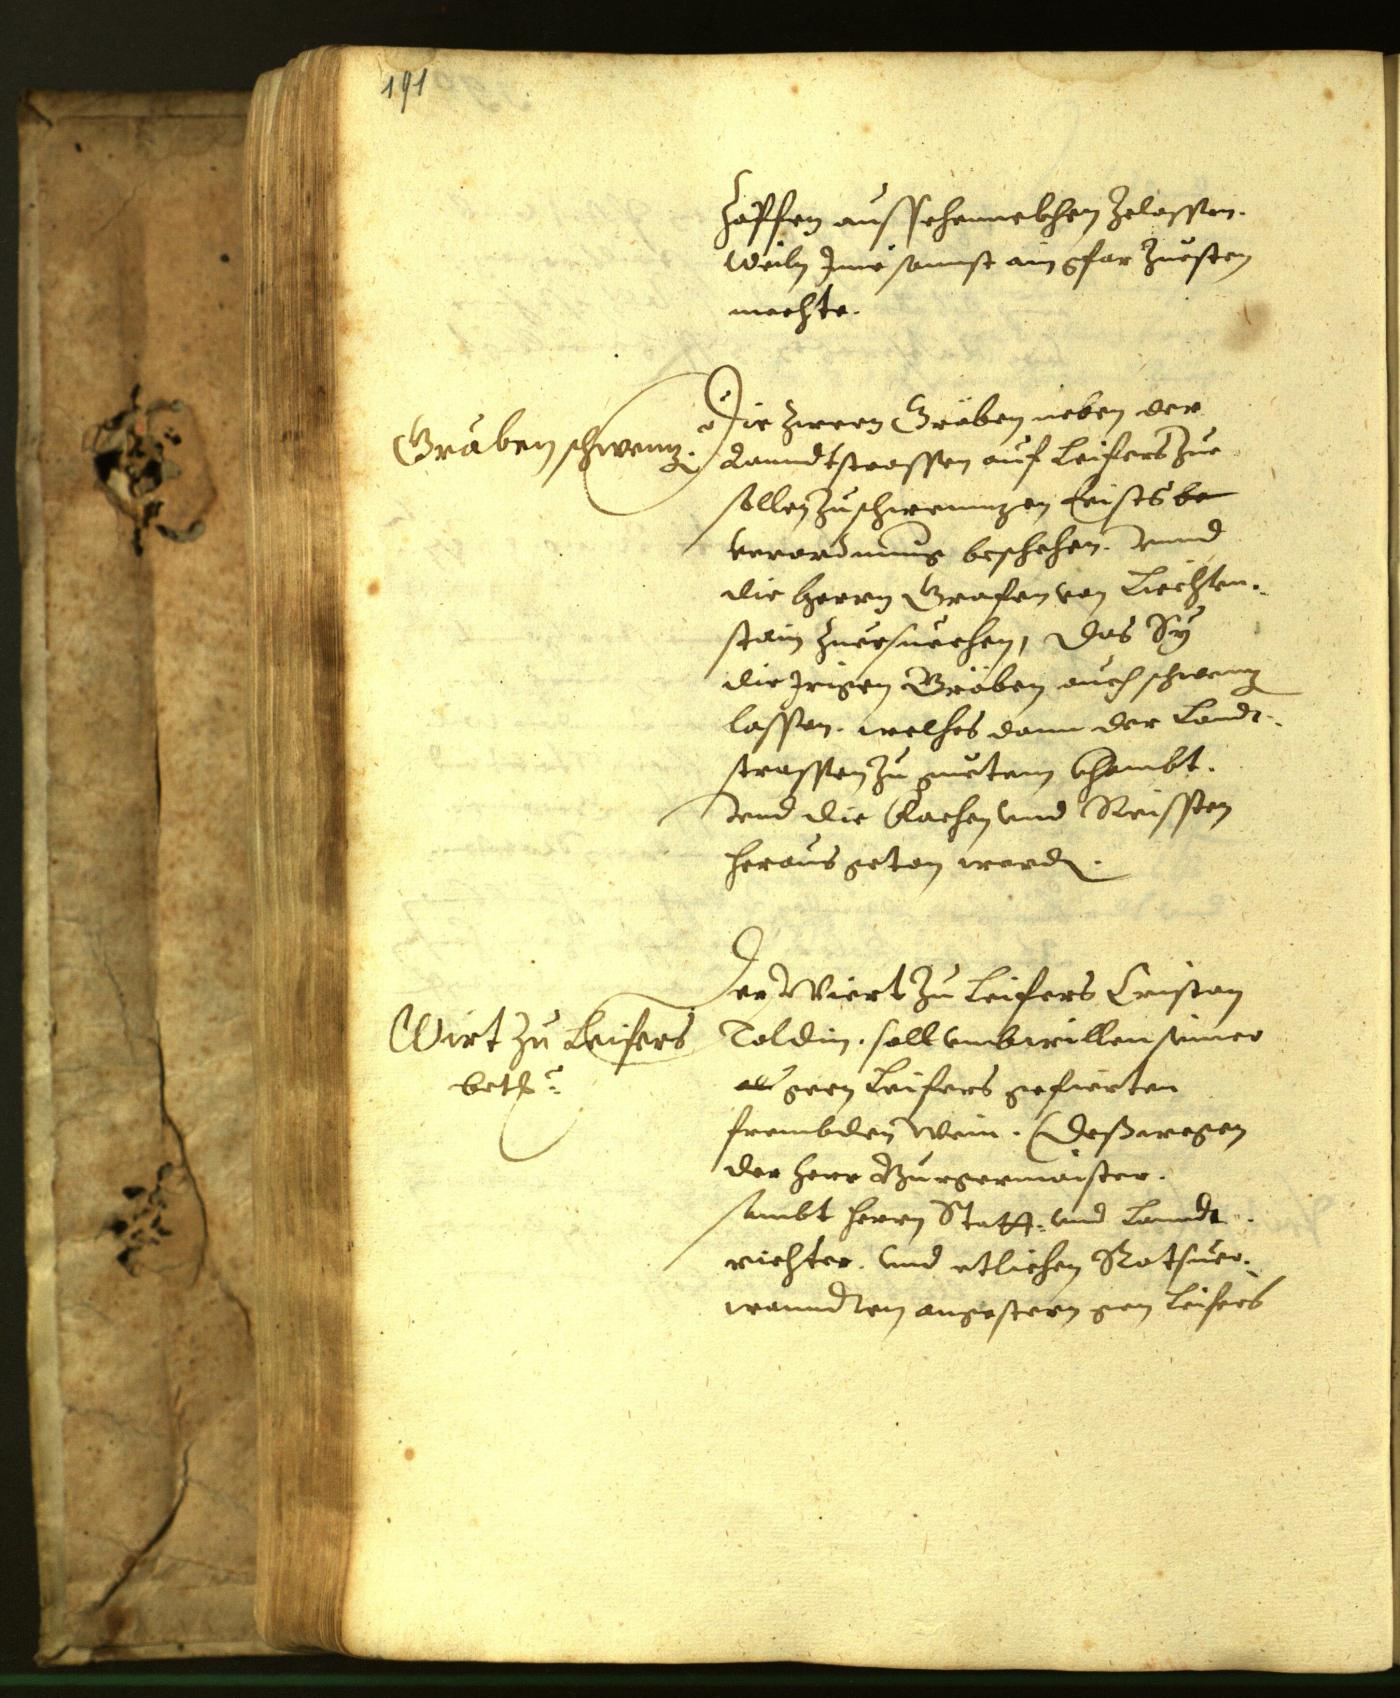 191
Zapffen ausschennckhen zelassen.
Weiln Ime sonnst ain gfar zuesten
mechte.
Gräben schwemz.
Die zween Gräben neben der
Lanndtstrassen auf Leifers zue
sollen zuschwemmzen leists be
verordnung beschehen. Vnnd
die herrn Grafen von Liechten-
stain zuersuechen, das Sy
die Irigen Gräben auch schwemz
lassen. welhes dann der Landt-
strassen zu guetem khombt.
Vnd die Rachen vnd Reissten
heraus geton werd.
Wirt zu Leifers
betr:
Der Wiert zu Leifers Cristan
Toldin. soll vmbwillen seiner
als geen Leifers gefierten
frembden Wein. (Deßwegen
der herr Burgermaister.
sambt herrn Statt- vnd Lanndt-
richter. vnd etlichen Ratsuer-
wanndten angestern gen Leifers